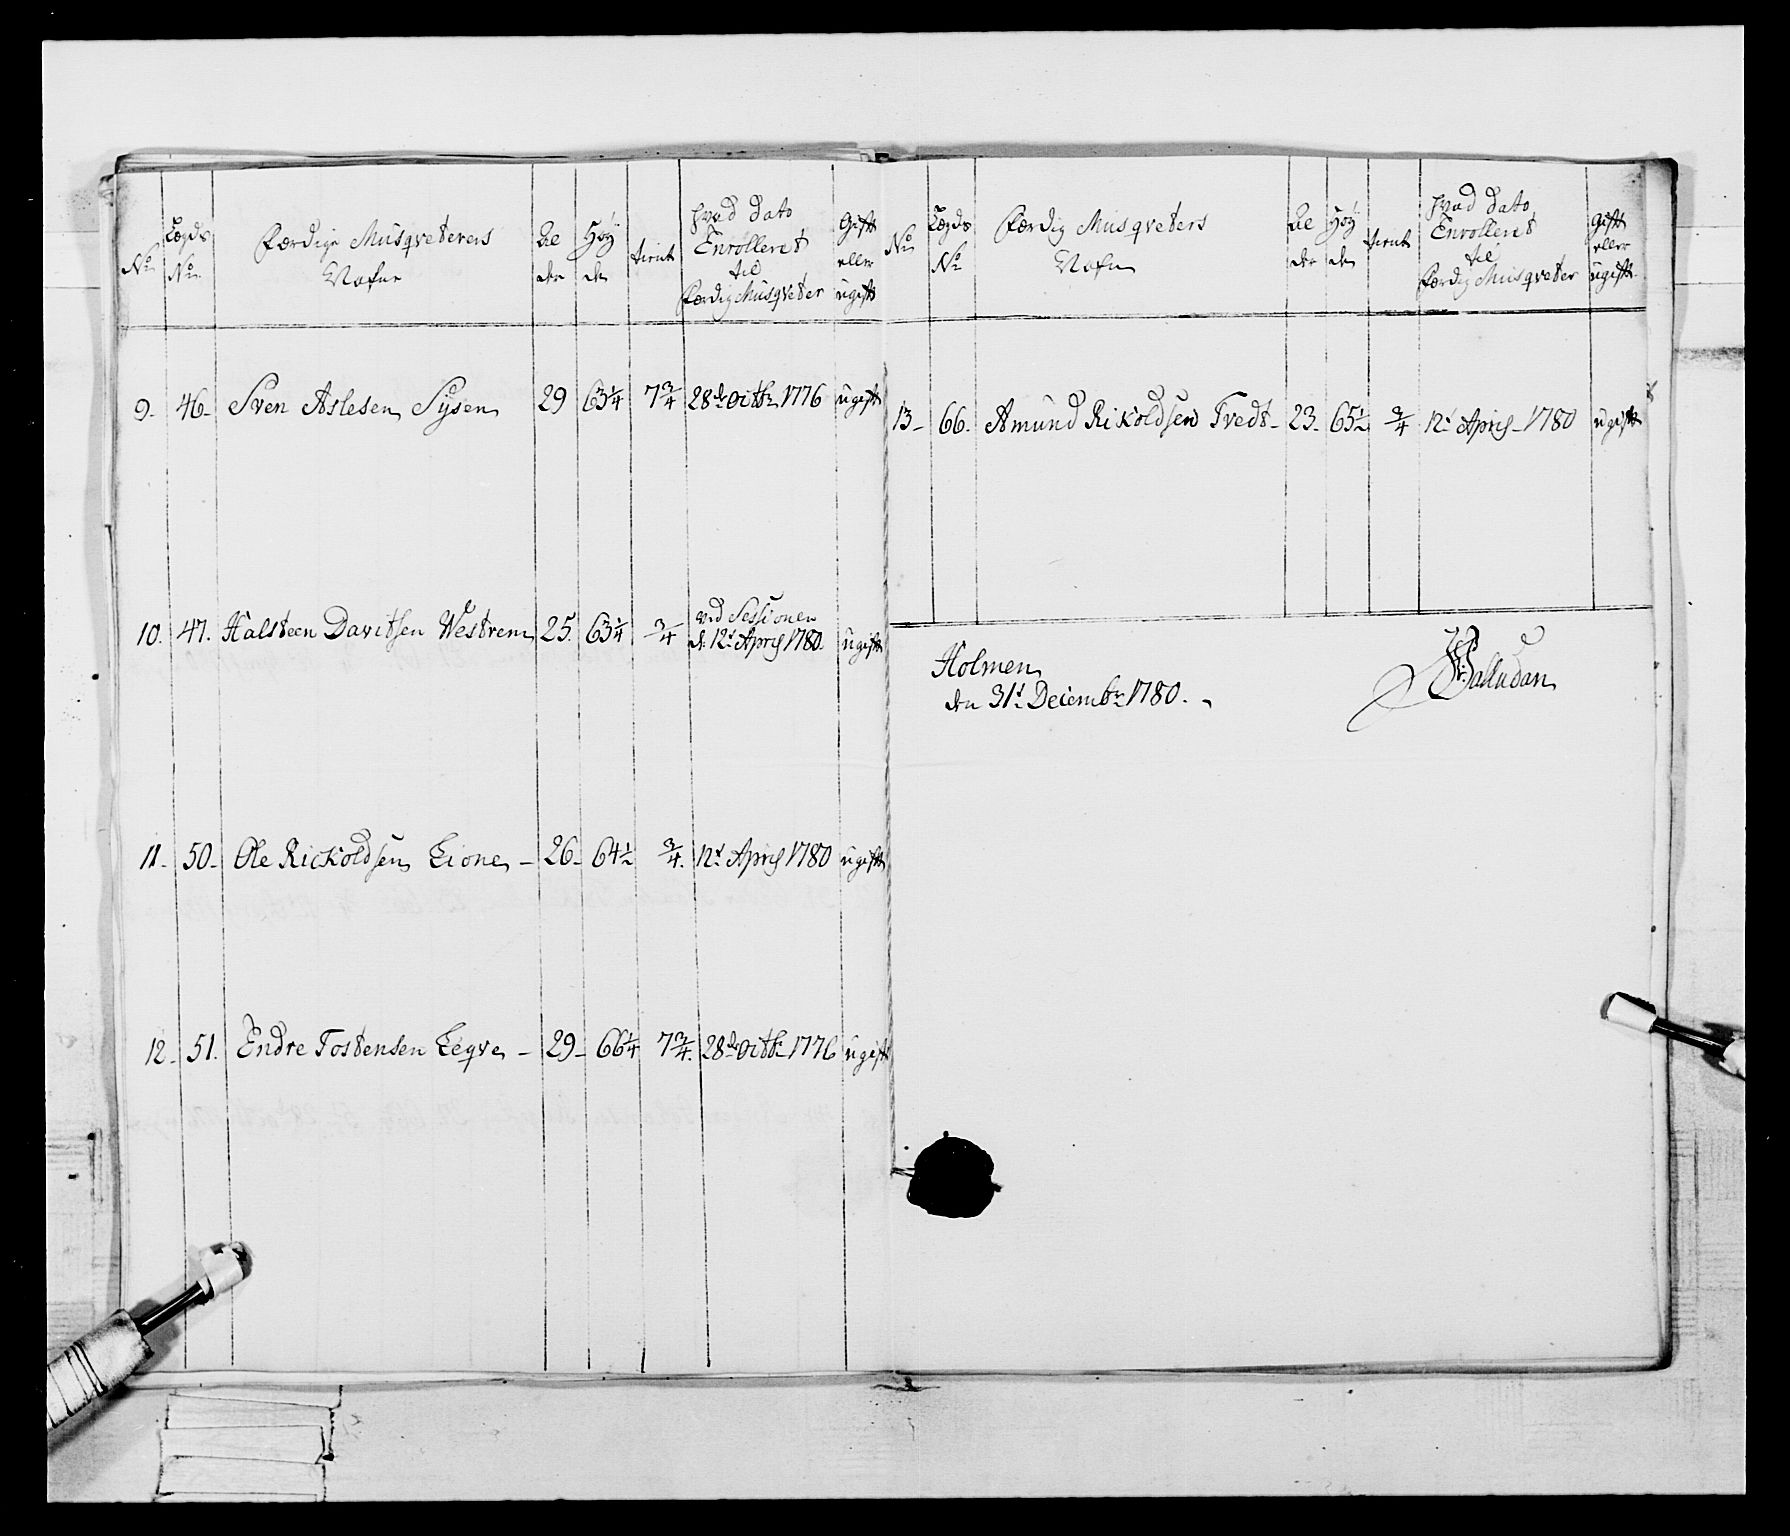 No
Lægds No
Færdige Musqveterers Nafne
Al der
Høy de
tient
Hvad Dato Enrolleret til Færdig Musqveter
Gift eller ugift
9- 46- Sven Aslesen Sysen 29 63 1/4 7 3/4 28de Octbr 1776 ugift
10. 47. Halsteen Davitsen Westrem 25. 63 1/4 3/4 ved Sessionen d. 12te April 1780. ugift
11- 50- Ole Rickoldsen Lione - 26- 64 1/2 3/4. 12te April 1780 ugift
12- 51. Endre Tostensen Leqve - 29- 66 1/4 7 3/4. 28de Octbr 1776 ugift
No
Lægds No
Færdig Musqveters Nafn
Al der
Høy de
tient
Hvad Dato Enrolleret til Færdig Musqveter
Gift eller ugift
13- 66. Amund Rikoldsen Tvedt- 23- 65 1/2 3/4 12te April- 1780 ugift
Holmen
den 31te Decembr 1780.
Palludan